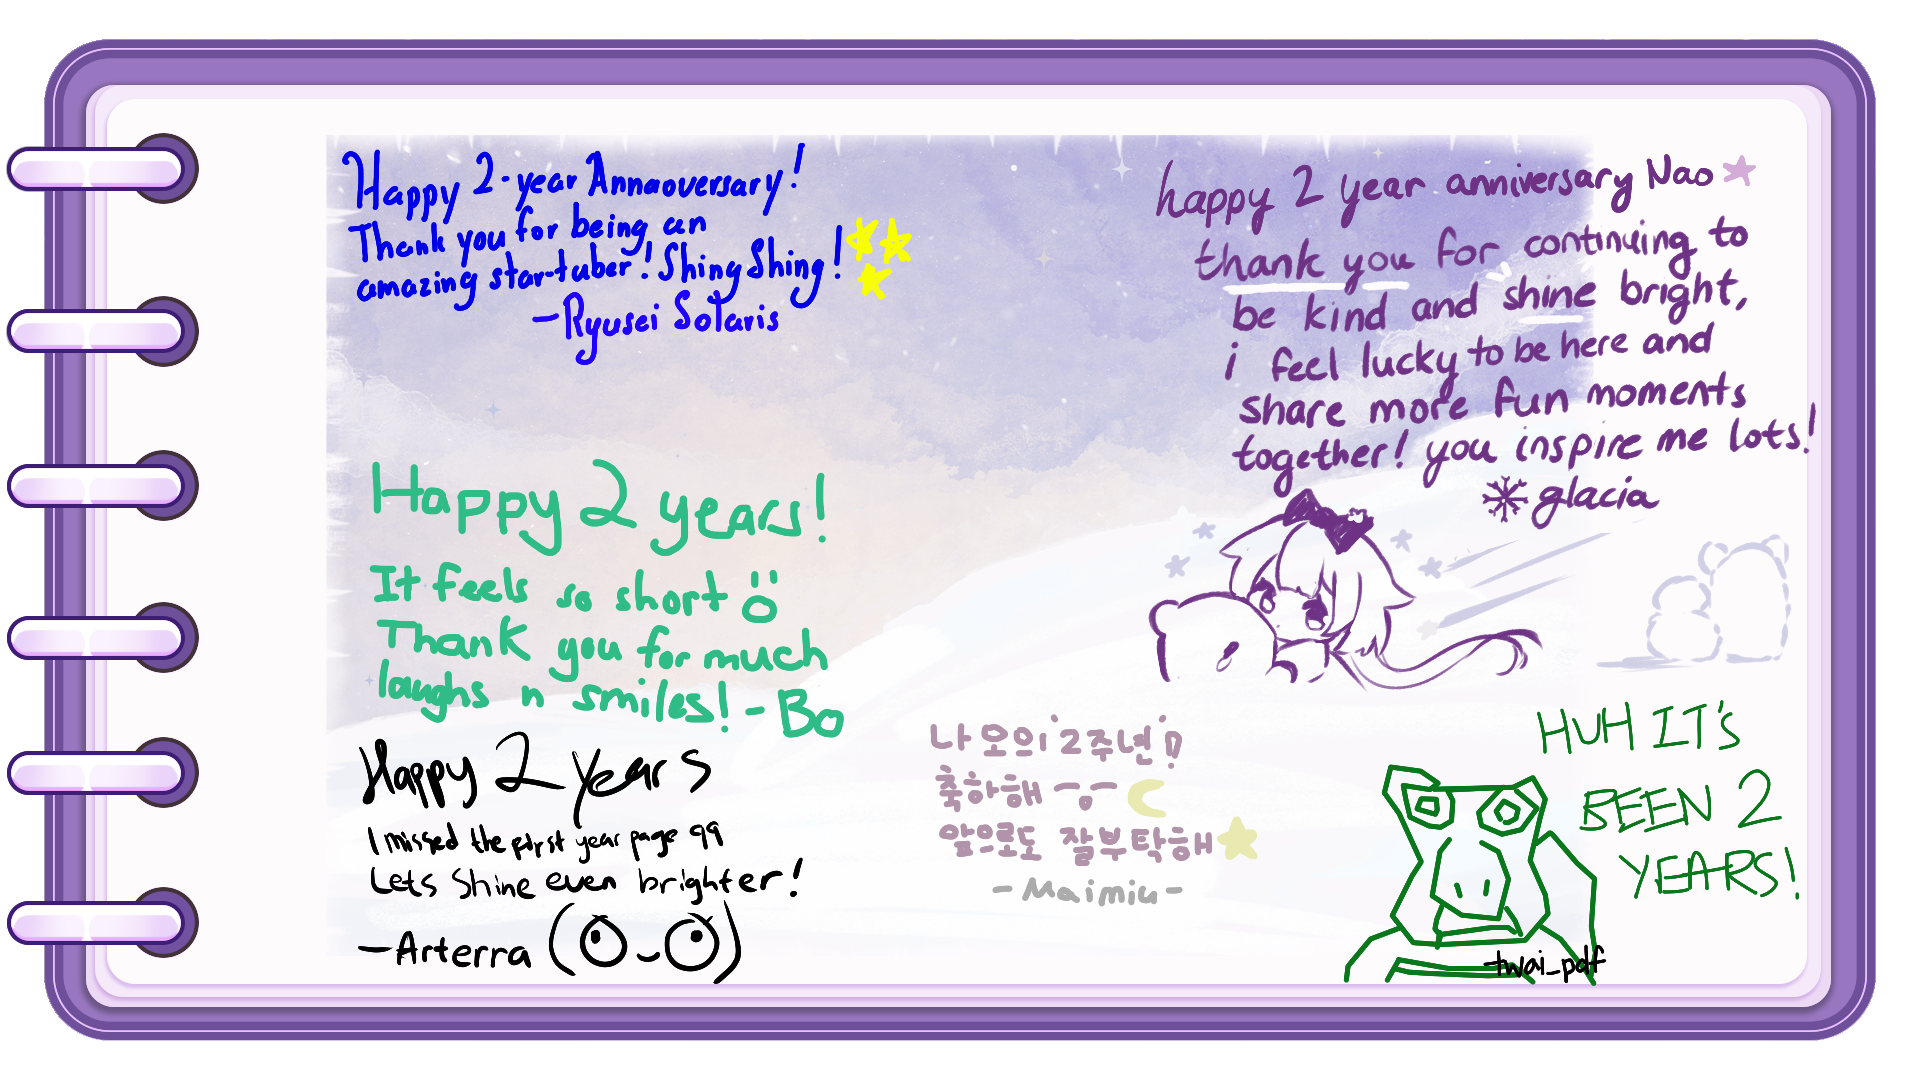 Happy 2-year Annaoversary!
Thank you for being an
amazing star-tuber! Shing Shing!
-Ryusei Solaris
happy 2 year anniversary Nao
thank you for continuing to
be kind and shine bright,
i feel lucky to be here and
share more fun moments
together! you inspire me lots!
glacia
Happy 2 years!
It feels so short
Thank you for much
laughs n smiles! - Bo
Happy 2 years
I missed the first year page 99
Lets Shine even brighter!
-Arterra
나오의 2주년!
축하해
앞으로도 잘 부탁해
-Maimiu-
HUH IT's
BEEN 2
YEARS!
-twai_pdf